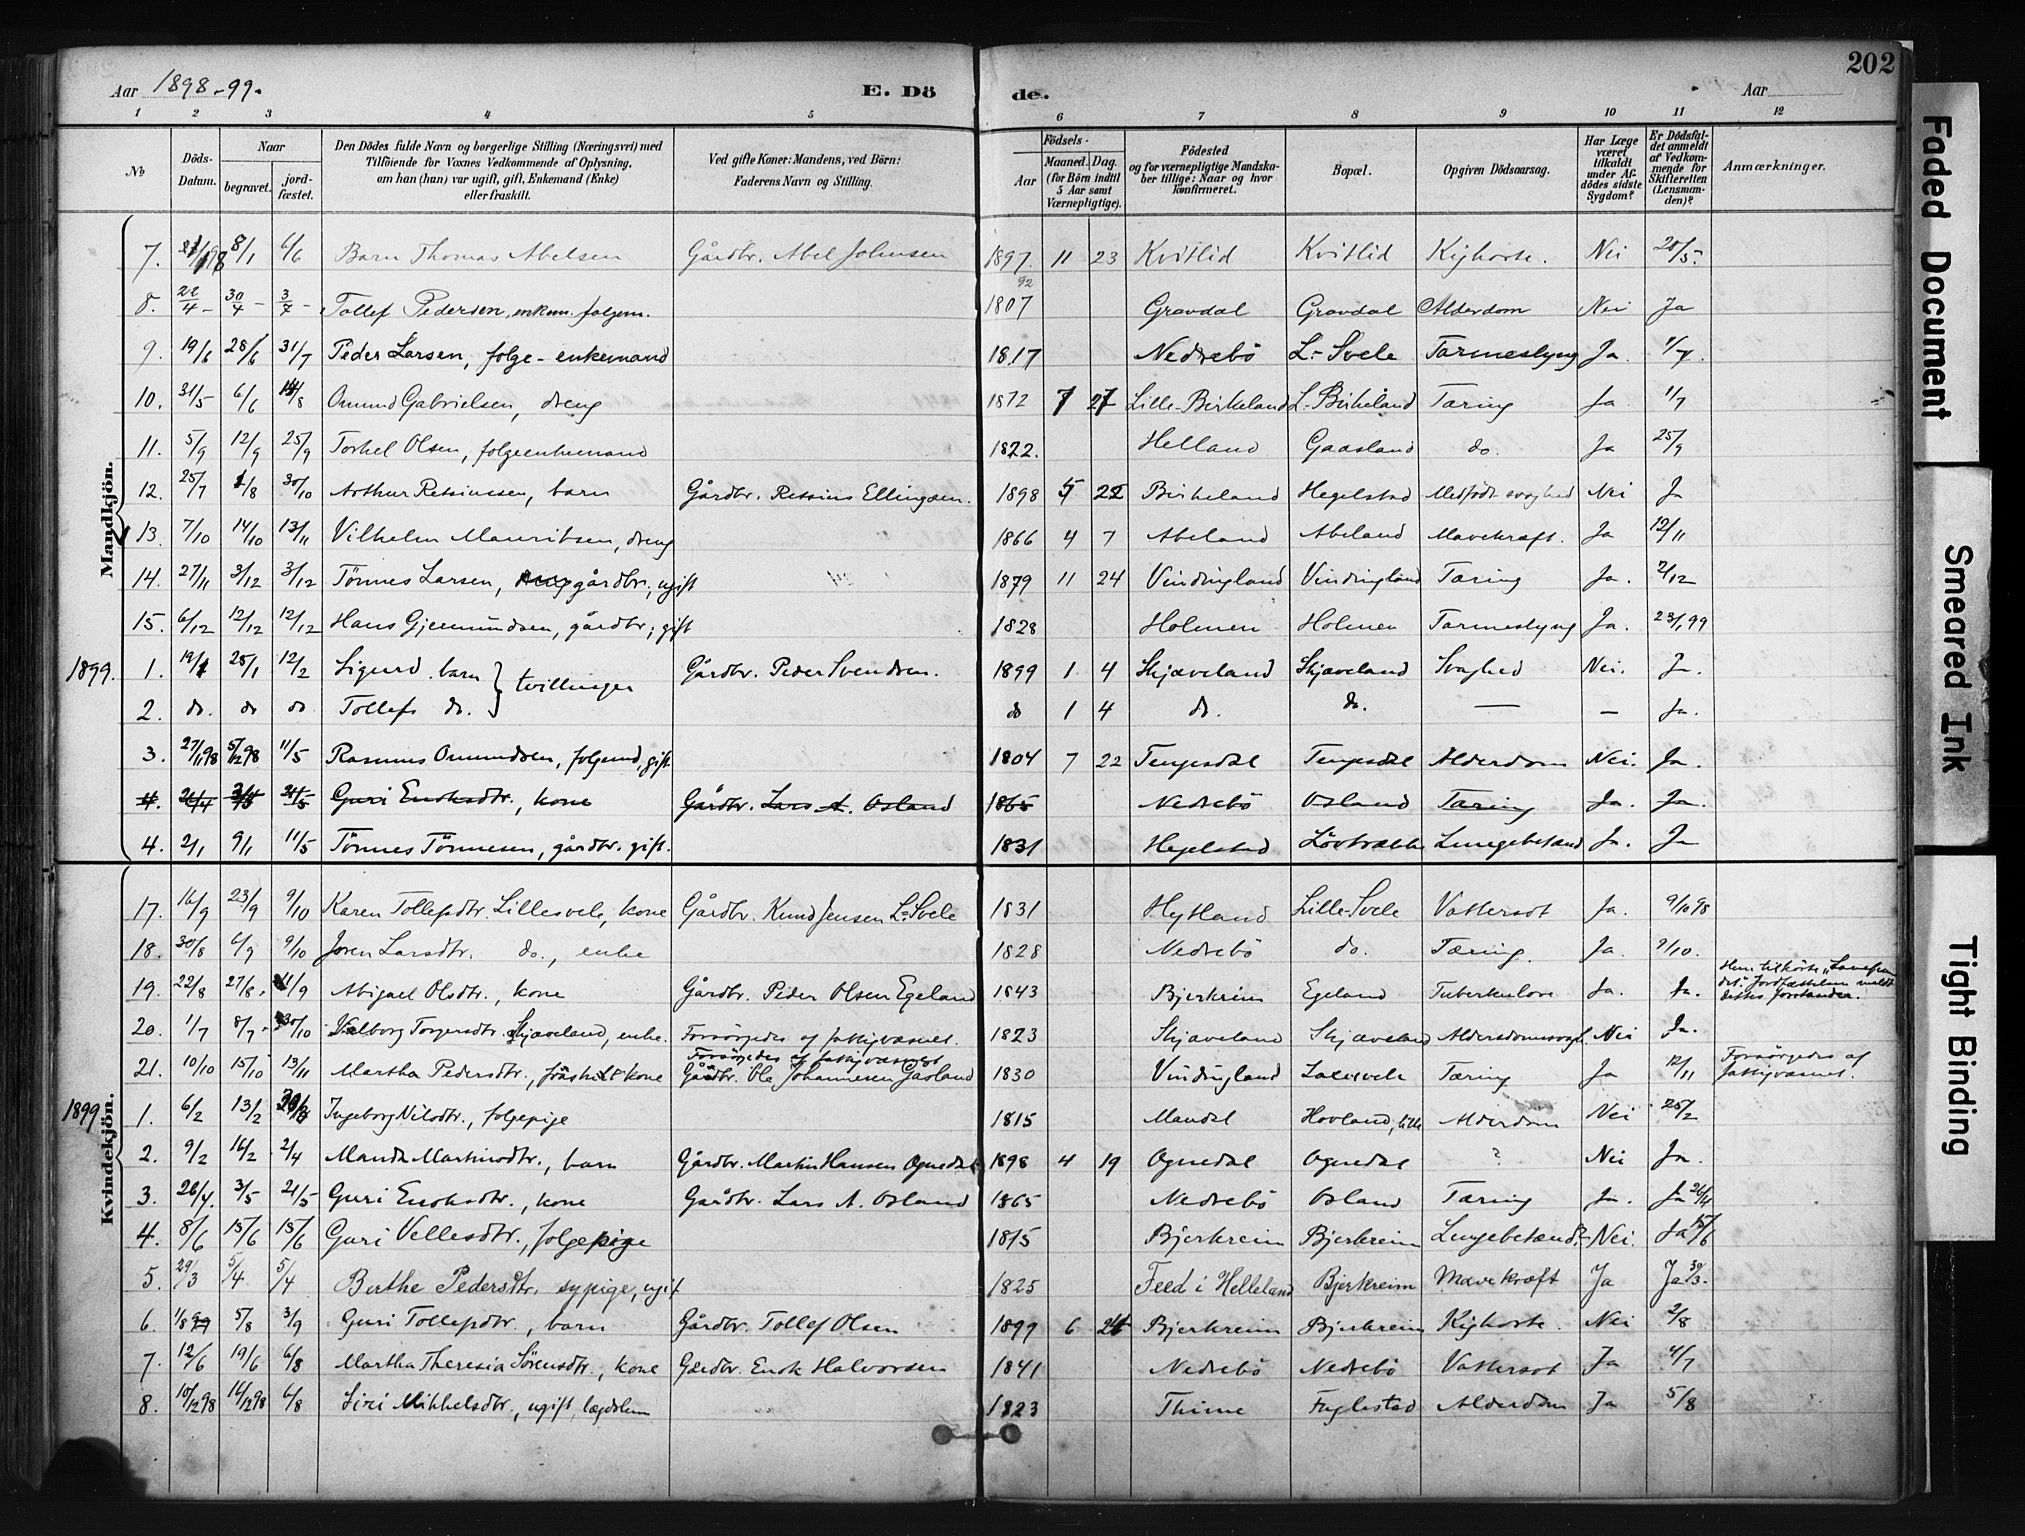 202
Aar 1898-99. E. Dö de. Aar
1 2 3 4 5 6 7 8 9 10 11 12
№ Döds-Datum. Naar begravet. jordfæstet. Den Dödes fulde Navn og borgerlige Stilling (Næringsvei) med Tilföiende for Voxnes Vedkommende af Oplysning, om han (hun) var ugift, gift, Enkemand (Enke) eller fraskilt. Ved gifte Koner: Mandens, ved Börn: Faderens Navn og Stilling. Födsels- Aar Maaned. Dag. (for Börn indtil 5 Aar samt Værnepligtige). Födested og for værnepligtige Mandskaber tillige: Naar og hvor Konfirmeret. Bopæl. Opgiven Dödsaarsag. Har Læge været tilkaldt under Afdödes sidste Sygdom? Er Dödsfaldet anmeldt af Vedkommende for Skifteretten (Lensmanden)? Anmærkninger.
Mandkjön.
7. 8/1 6/6 Barn Thomas Abelsen Gårdbr. Abel Johnsen 1897. 11 23 Kvitlid Kvitlid Kighoste. Nei 20/5.
8. 22/4 - 30/4 - 3/7 - Tollef Pedersen, enkem. folgem. 1807 Gravdal Gravdal Alderdom Nei Ja
9. 19/6 28/6 31/7 Peder Larsen, folge-enkemand 1817 Nedrebö L-Svele Tarmeslyng Ja. 1/7.
10. 31/5 6/6 14/8 Omund Gabrielsen, dreng 1872 7 27 Lille-Birkeland L-Birkeland Tæring Ja. 1/7
11. 5/9 12/9 25/9 Torkel Olsen, folgeenkemand 1822. Helland Gaasland do. Ja 25/9
12. 25/7 1/8 30/10 Arthur Retsiussen, barn Gårdbr. Retsius Ellingsen. 1898 5 22 Birkeland Hegelstad Medfödt svaghed Nei Ja
13. 7/10 14/10 13/11 Vilhelm Mauritsen, dreng 1866 4 7 Abeland Abeland Mavekræft. Ja 12/11
14. 27/11 3/12 3/12 Tönnes Larsen, gårdbr., ugift 1879 11 24 Vindingland Vindingland Tæring Ja. 2/12
15. 6/12 12/12 12/12 Hans Gjermundsen, gårdbr., gift 1828 Holmen Holmen Tarmeslyng Ja. 23/1 99
1899. 1. 19/1 25/1 12/2 Sigurd barn } tvillinger Gårdbr. Peder Svendsen. 1899 1 4 Skjæveland Skjæveland Svaghed Nei. Ja.
2. do. do do Tollef do. do 1 4 do. do. — — Ja.
3. 27/11 98 5/12 98 11/5 Rasmus Omundsen, folgemd, gift 1804 7 22 Tengesdal Tengesdal Alderdom Nei. Ja.
4. 26/4 3/5 21/5 Guri Enoksdtr., kone Gårdbr. Lars A. Osland 1865 Nedrebö Osland Tæring Ja. Ja.
4. 2/1 9/1 11/5 Tönnes Tönnesen, gårdbr. gift. 1831 Hegelstad Lövbrække Lungebetænd Ja. Ja
Kvindekjön.
17. 16/9 23/9 9/10 Karen Tollefsdtr. Lillesvele, kone Gårdbr. Knud Jensen L-Svele 1831 Hytland Lille-Svele Vattersot Ja. 9/10 98
18. 30/8 6/9 9/10 Joren Larsdtr. do., enke 1828 Nedrebö do. Tæring. Ja. 9/10.
19. 22/8 27/8. 11/9 Abigael Olsdtr., kone Gårdbr. Peder Olsen Egeland 1843 Bjerkreim Egeland Tuberkulose Ja. Ja. Hun tilhörte Jordfæstelsen meldt dettes Forstander.
20. 1/7 8/7 - 30/10 Valborg Torgersdtr. Skjæveland, enke. Forsörgedes af fattigvæsnet. 1823 Skjæveland Skjæveland Alderdomssvagh. Nei Ja.
21. 10/10 15/10 13/11 Martha Pedersdtr., fraskilt kone Forsörgedes af fattigvæsnet Gårdbr. Ole Johannesen Gåsland 1830 Vindingland Tæring Ja 12/11 Forsörgedes af fattigvæsnet.
1899 1. 6/2 13/2 Ingeborg Nilsdtr., folgepige 1815 Mandal Hovland, lille Alderdom Nei 25/2
2. 9/2 16/2 2/4 Manda Martinsdtr., barn Gårdbr. Martin Hansen Ognedal 1898 4 19 Ognedal Ognedal ? Nei Ja.
3. 26/4. 3/5 21/5 Guri Enoksdtr., kone Gardbr. Lars A. Osland 1865 Nedrebö Osland Tæring Ja. Ja 26/4
4. 8/6 15/6 15/6 Guri Vellesdtr., folgepige 1815 Bjerkreim Bjerkreim Lungebetænd. Nei. Ja 15/6
5. 29/3 5/4 5/4 Berthe Pedersdtr. sypige, ugift 1825 Feed i Helleland Bjerkreim Mavekræft Ja Ja 30/3.
6. 1/8 99 5/8 3/9 Guri Tollefsdtr., barn Gårdbr. Tollef Olsen 1899 6 26 Bjerkreim Bjerkreim Kighoste. Nei 2/8
7. 12/6 19/6 6/8 Martha Theresia Sörensdtr., kone Gårdbr. Enok Halvorsen 1841 Nedrebö Nedrebö Vattersot Ja 4/7
8. 10/12 98 16/12 98 6/8 Siri Mikkelsdtr., ugift, lægdslem 1823 Thime Fuglestad Alderdom Ja 5/8
Faded Document
Smeared Ink
Tight Binding